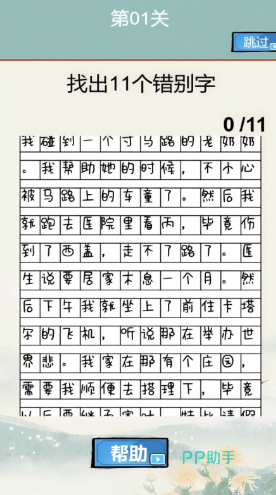 第01关
跳过
找出11个错别字
0 /11
我碰到一个寸马路的老奶奶
。我帮助她的时候，不小心
被马路上的车童了。然后我
就跑去医院里看丙，毕竟伤
到了西盖，走不了路了。医
生说要居家木息一个月。然
后下午我就坐上了前住卡塔
尔的飞机，听说那在举办世
界悲。我家在那有个庄园，
需要我顺便去搭理下，毕竟
以后要继
帮助
PP助手